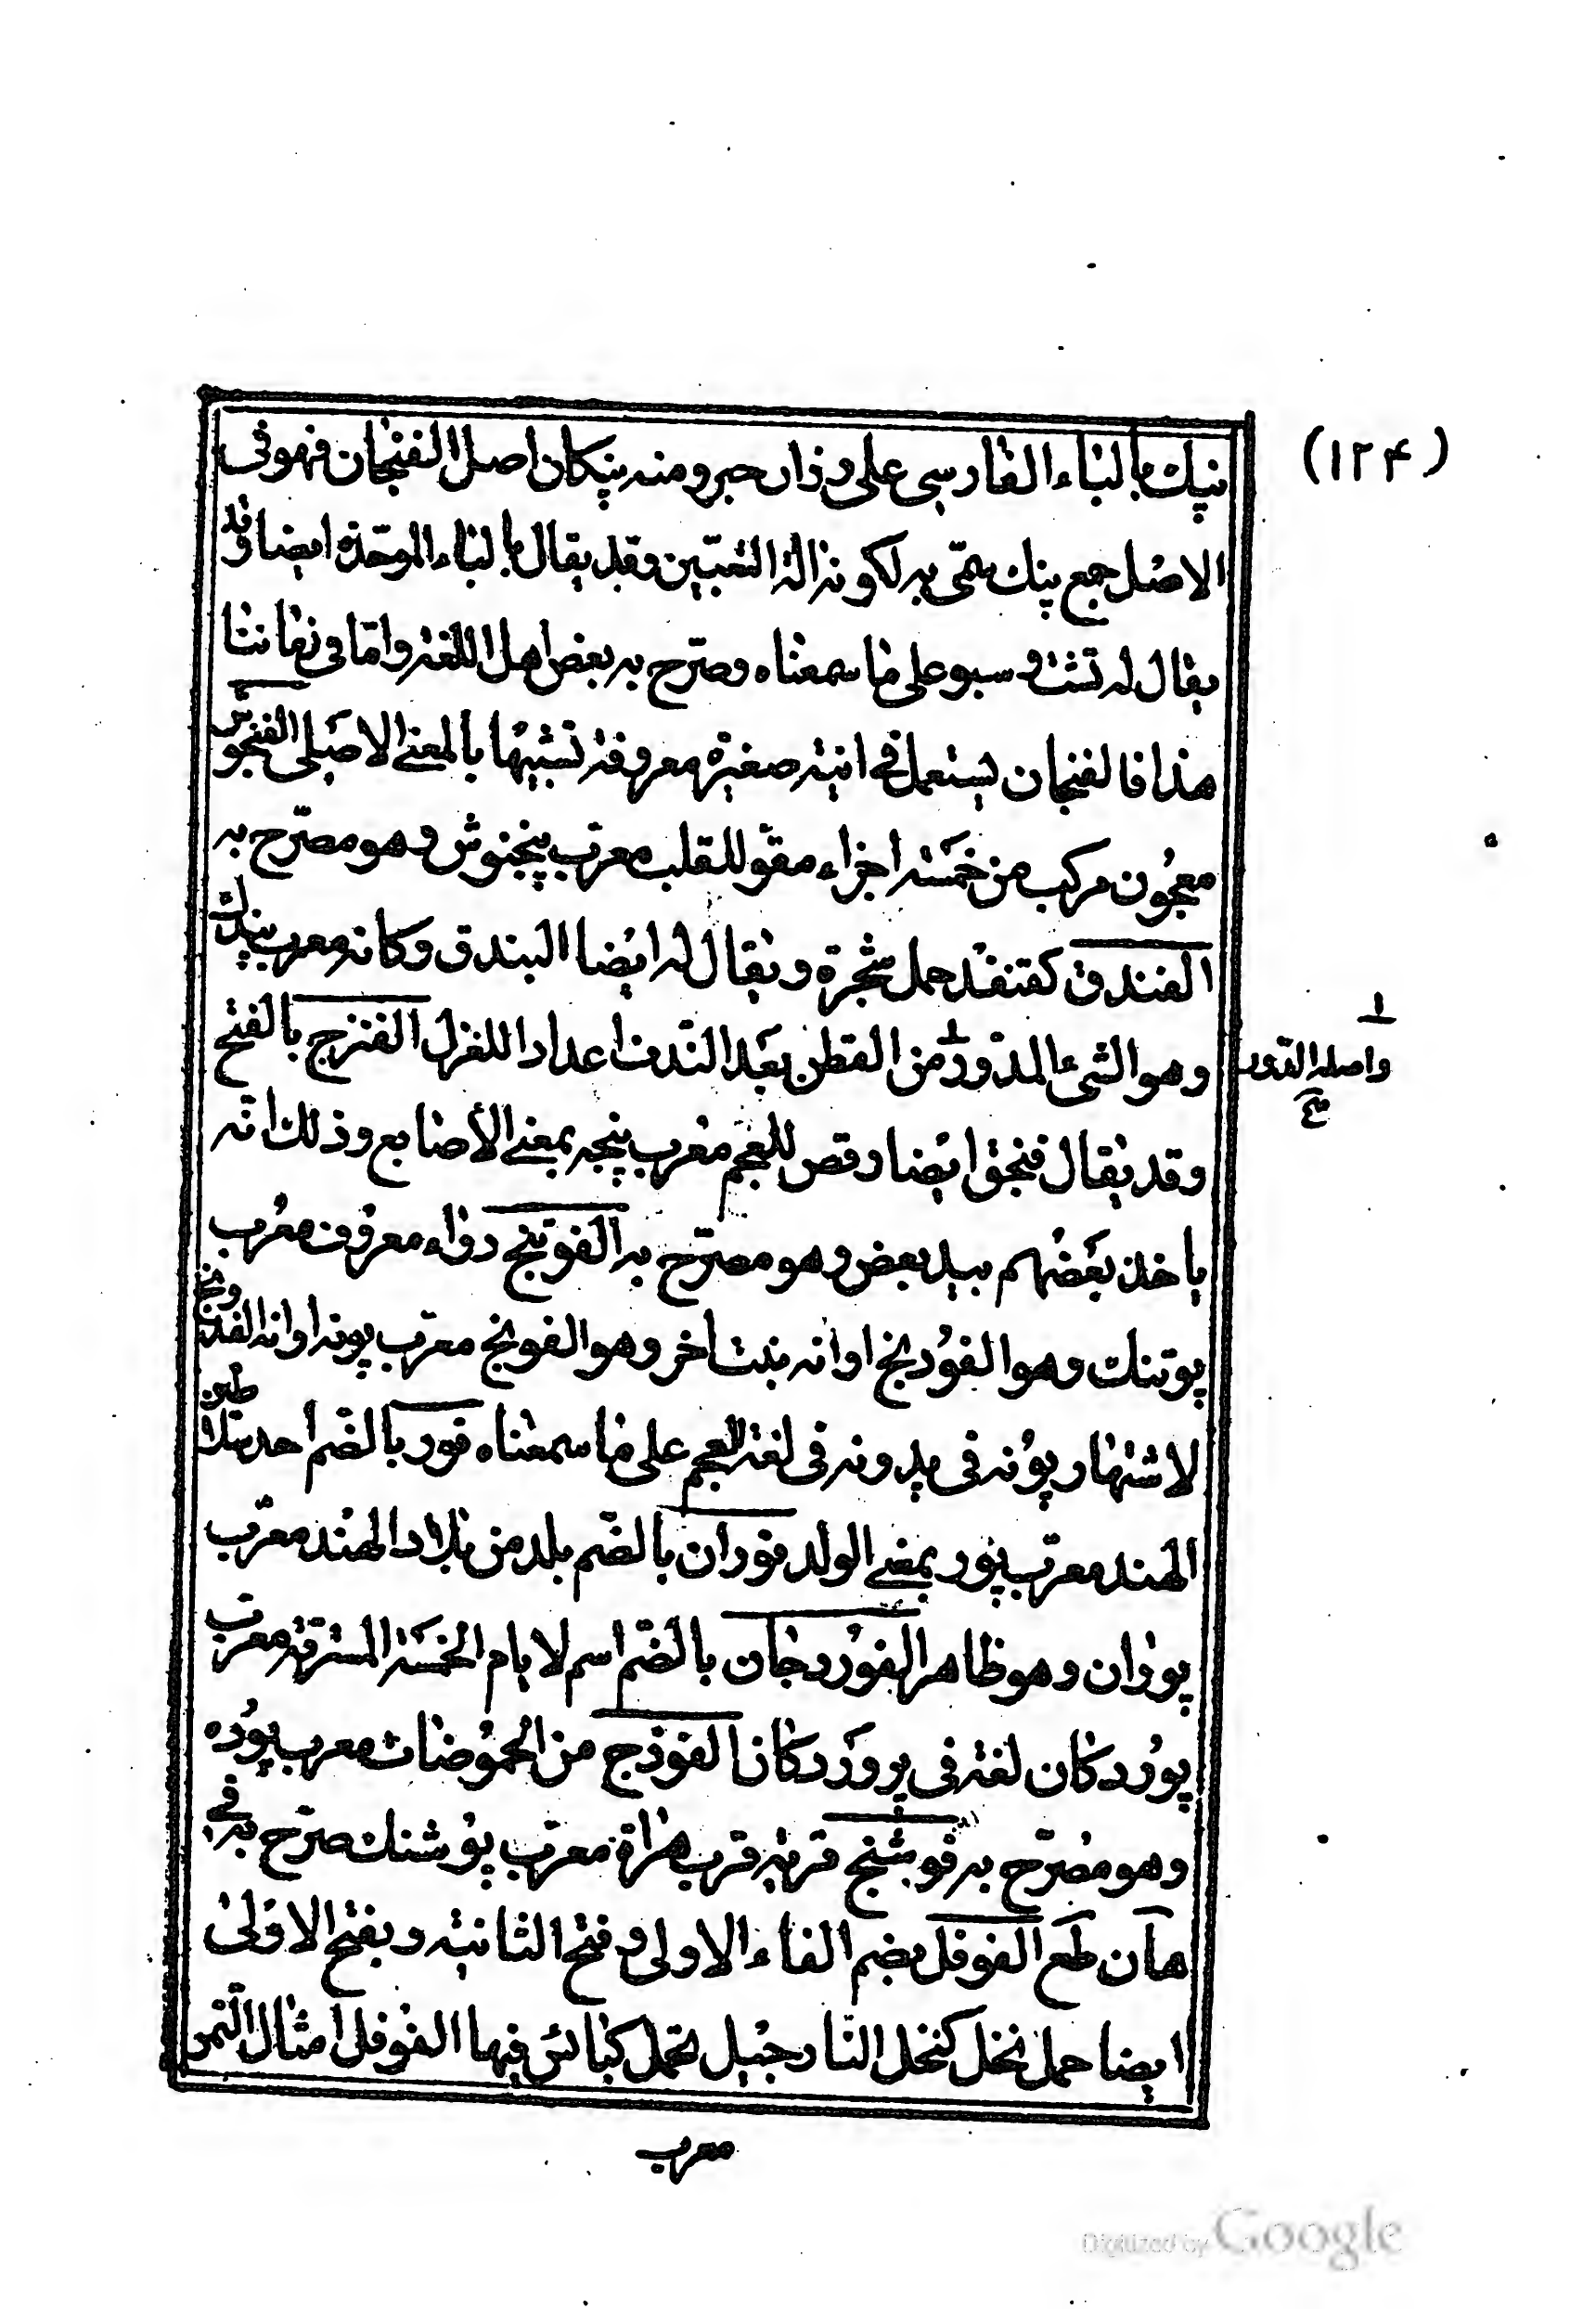 (١٢۴)
پنك بالباء الفارسى على وزان حبر ومنه پنكان اصل الفنجان فهو فى
الاصل جمع پنك سمّى به لكونه الة التعيين وقد يقال بالباء الموحّدة ايضا وقد
يقال له تشت وسبو على ما سمعناه وصرّح به بعض اهل اللغة وامّا فى زماننا
هذا فالفنجان يستعمل فى انية صغيرة معروفة تشبيها بالمعنى الاصلى الفنجوش
معجون مركب من خمسة اجزاء مقوّ للقلب معرّب پنجنوش وهو مصرّح به
الفندق كقنفذ حمل شجرة ويقال له ايضا البندق وكانه معرب پندك
وهو الشىء المدوّر من القطن بعد الندف اعدادا للغزل الفنزج بالفتح
وقد يقال فنجق ايضا رقص للعجم معرب پنجه بمعنى الأصابع وذلك انّه
ياخذ بعضهم بيد بعض وهو مصرّح به الفوتنج دواء معروف معرب
پوتنك وهو الفودنج او انه نبت اخر وهو الفونج معرّب پونه او انه الفدونج
لاشتهار پونه فى پدونه فى لغة العجم على ما سمعناه فور بالضّم احد سلاطين
الهند معرّب پور بمعنى الولد فوران بالضّم بلد من بلاد الهند معرّب
پوران وهو ظاهر الفوردجان بالضّم اسم لايام الخمسة المسترقة معرّب
پوردكان لغة فى پروردكان الفوذج من الحموضات معرب پوده
وهو مصرّح به فوشنج قرية قرب هراة معرّب پوشنك صرّح به فى
هآن طع الفوفل بضم الفاء الاولى وفتح الثانية وبفتح الاولى
ايضا حمل نخل كنخل النارجيل تحمل كبائس فيها الفوفل امثال التمر
معرب
١
واصله المدور
Digitized by Google